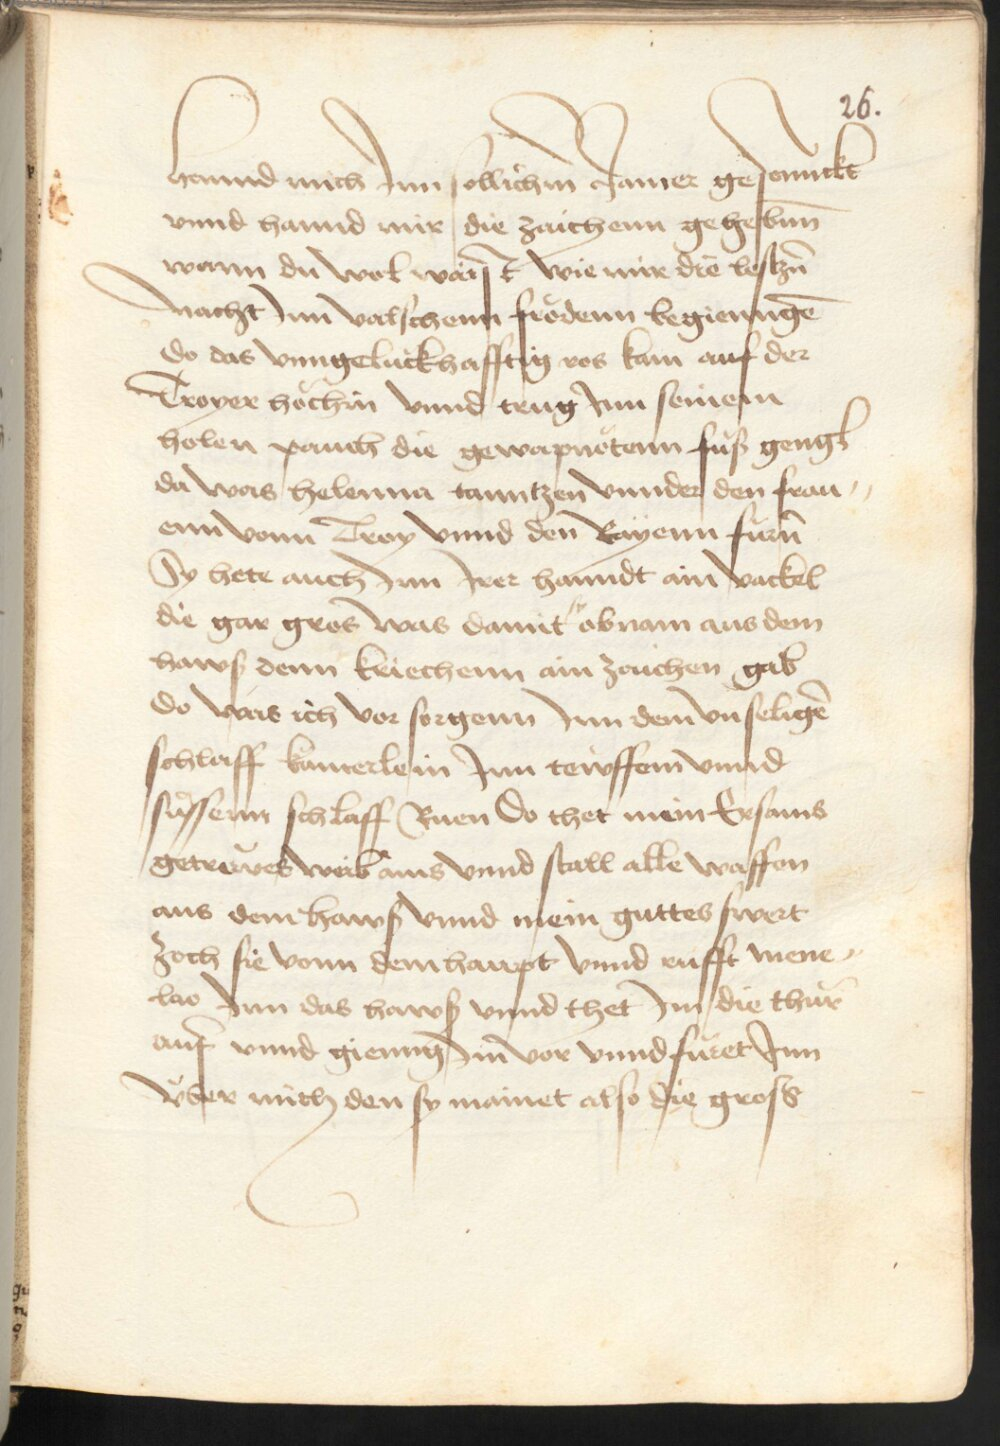 26.
hannd mich Inn sollichm Jamer gesennckt
vnnd hannd mir die zaichenn gehebnn
wann du wol waist wie mir die leſtzn̄
nacht Inn valschenn frödenn begienngē
do das vnngeluckhafftig ros kam auf der
Troyer höchin vnnd trug Inn seinem
holen pauch die gewapnötenn fuſs gengl
da was helenna tanntzen vnnder den frau〃
enn vonn Troy vnnd den Rayenn fürn̄
Sy hete auch Inn Irer hanndt ain vackel
die gar gros was damit sy obnam aus dem
hawſs denn kriechenn ain zaichen gab
Do was ich vor sorgenn Inn dem vnseligē
schlaff kamerlein Inn tewffem vnnd
süssenn schlaff Ruen Do thet mein Ersams
getrewes weib ains vnnd stall alle waffen
aus dem hawſs vnnd mein guttes swert
zoch sie vonn dem haupt vnnd rufft mene〃
lao Inn das hawſs vnnd thet Im die thür
auf vnnd gienng Im vor vnnd füret Inn
vber mich den sy mainet also die groſs